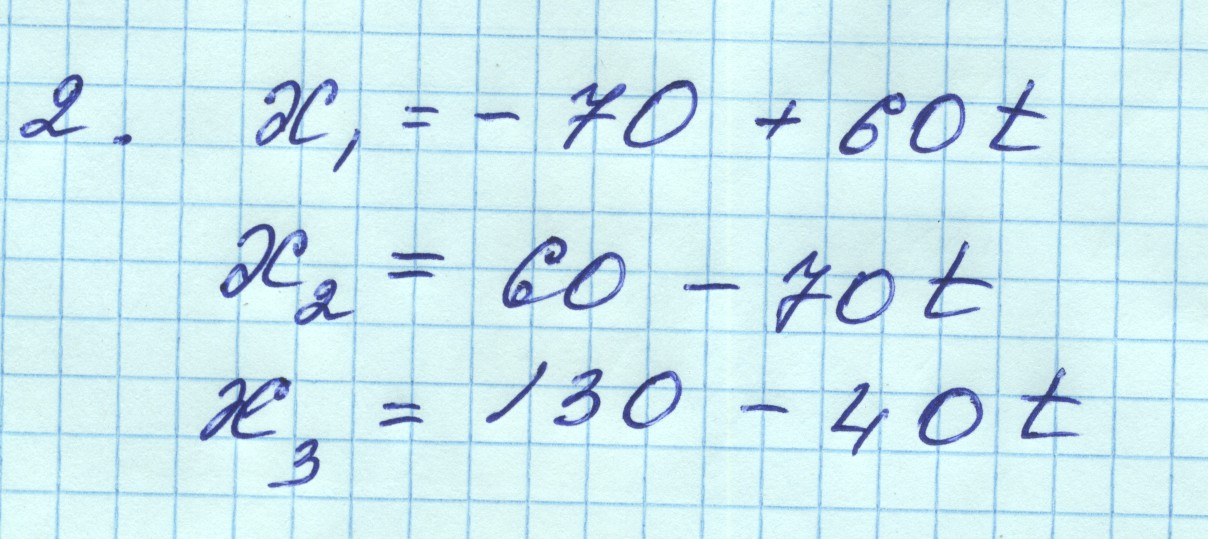 2. x₁ = - 70 + 60t
x₂ = 60 - 70t
x₃ = 130 - 40t